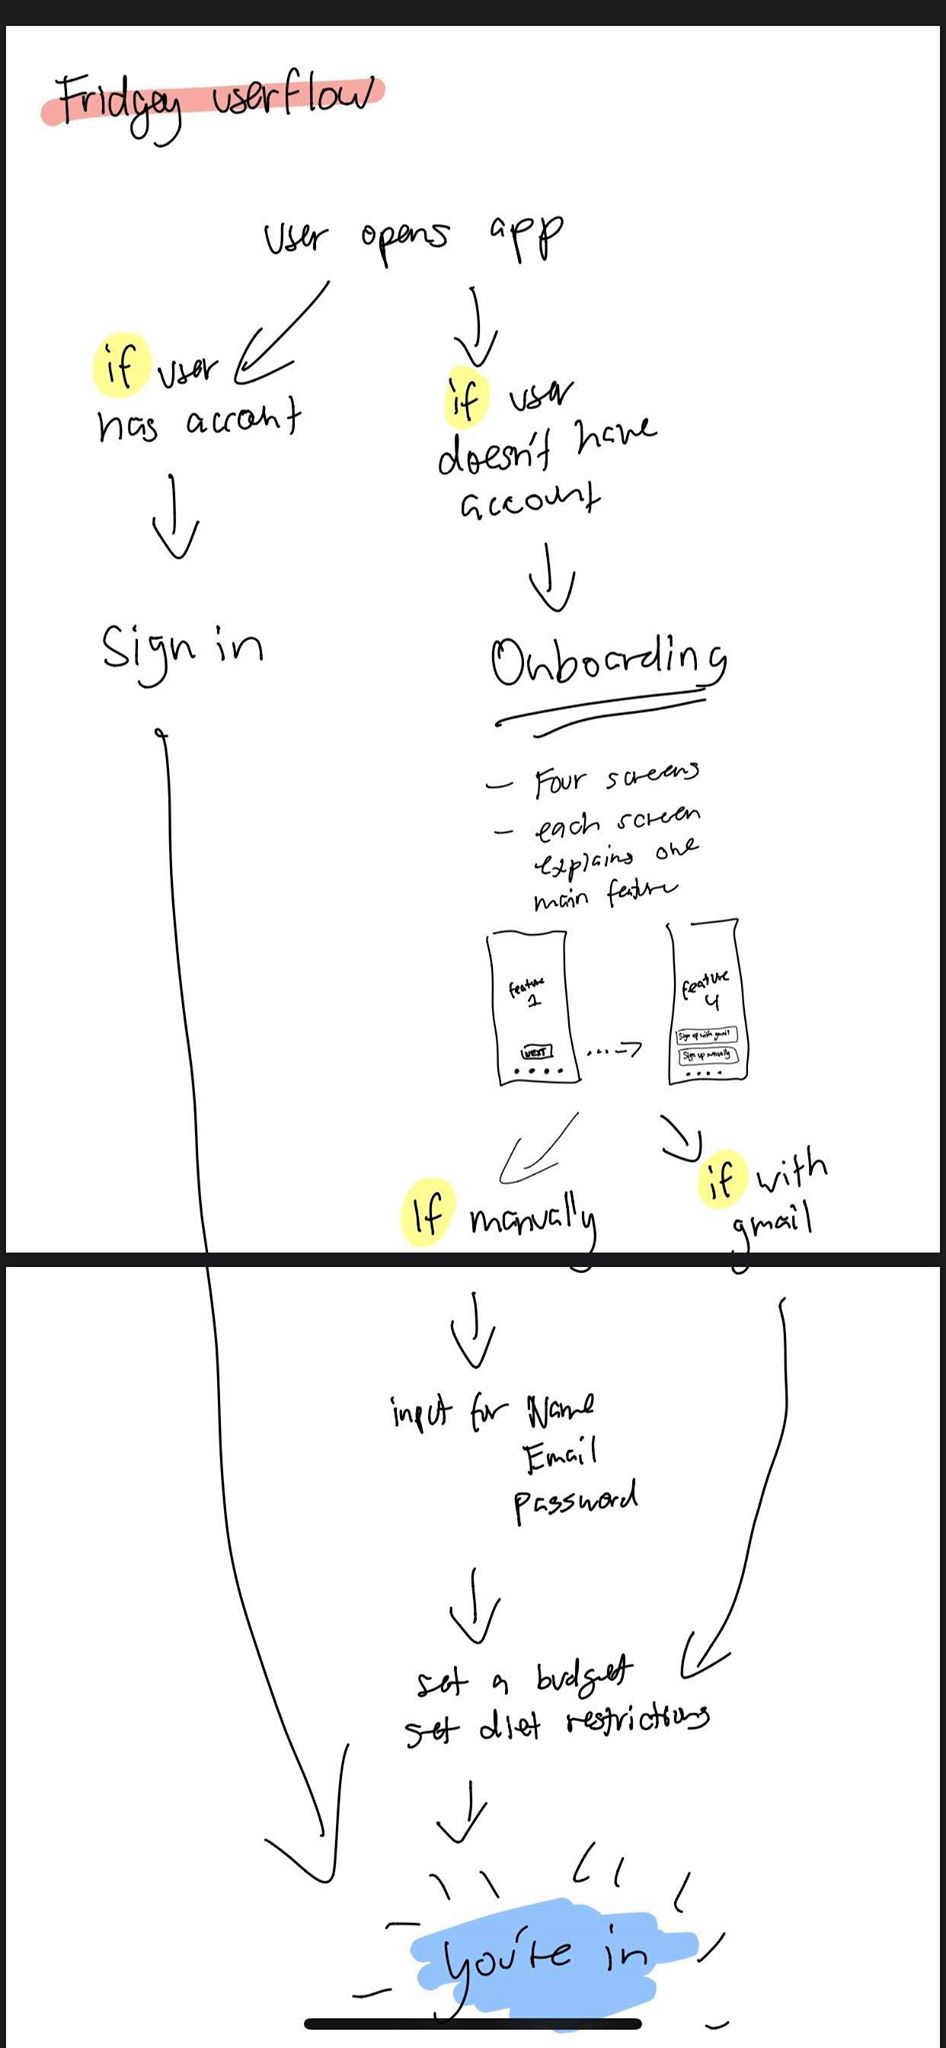 Fridgey userflow
User opens app
if user
has account
if user
doesn't have
account
Sign in
Onboarding
- Four screens
- each screen
explains one
main feature
feature
1
NEXT
feature
4
Sign up with gmail
Sign up manually
If manually
if with
gmail
input for Name
Email
Password
set a budget
set diet restrictions
you're in